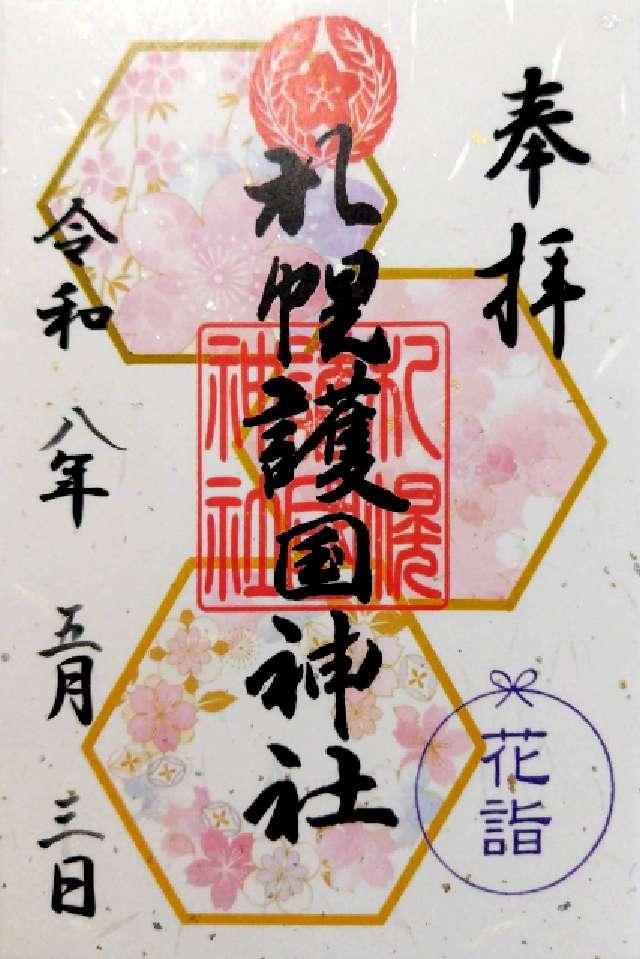 奉拝
札幌護国神社
札幌
護国
神社
令和八年五月三日
花詣